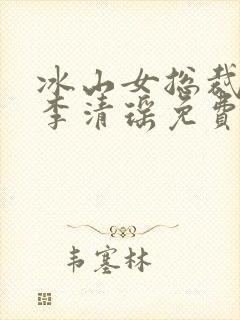 冰山女总裁
李清瑶免费
韦塞林